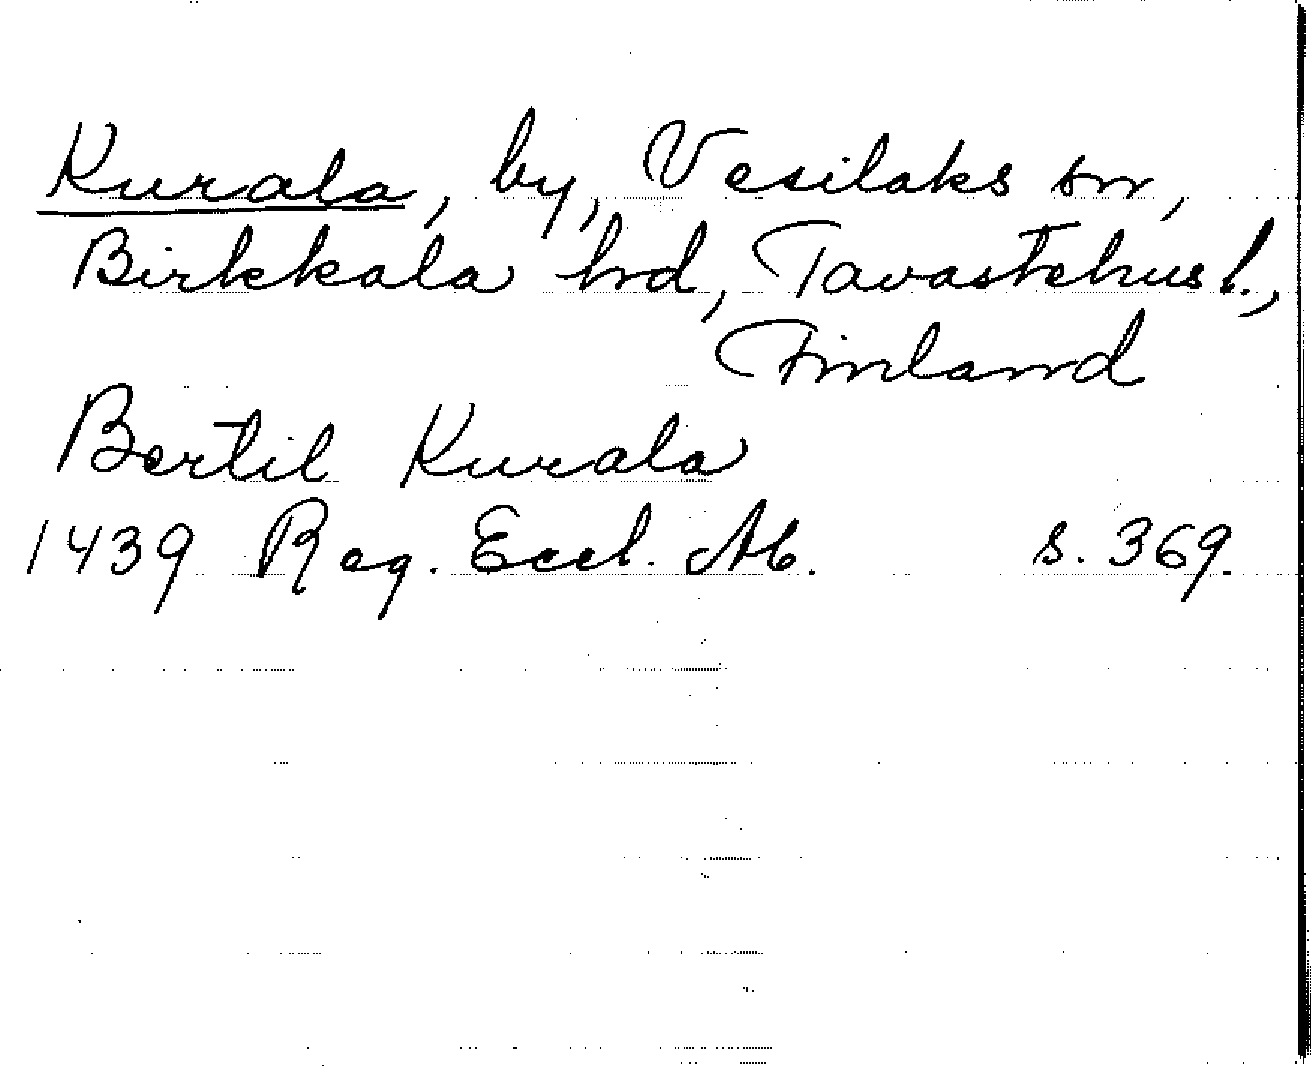 Kurala, by, Vesilaks sn,
Birkkala hrd, Tavastehus l.,
Finland
Bertil Kurala
1439 Reg. Eccl. Ab. s. 369.